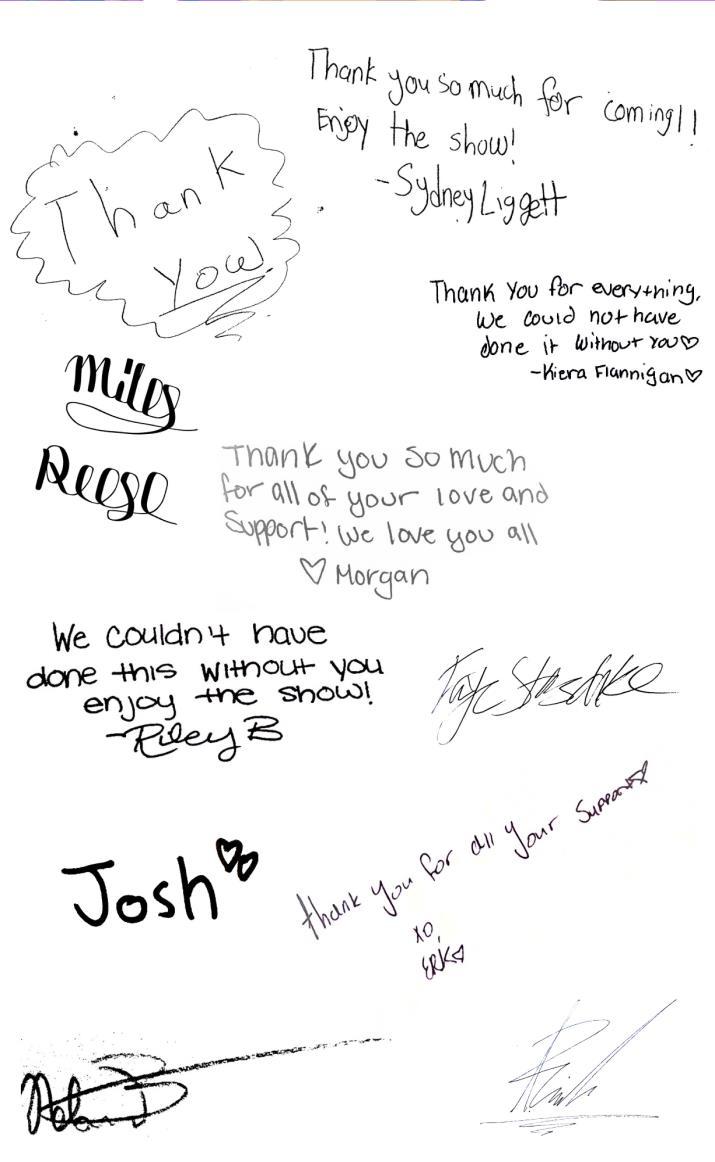 Thank you so much for coming!!
Enjoy the show!
-Sydney Liggett
Thank
you
Thank you for everything,
we could not have
done it without you♡
-Kiera Flannigan♡
Miles
Reese
Thank you so much
for all of your love and
support! We love you all
♡ Morgan
We couldn't have
done this without you
enjoy the show!
-Riley B
Josh
thank you for all your support
xo,